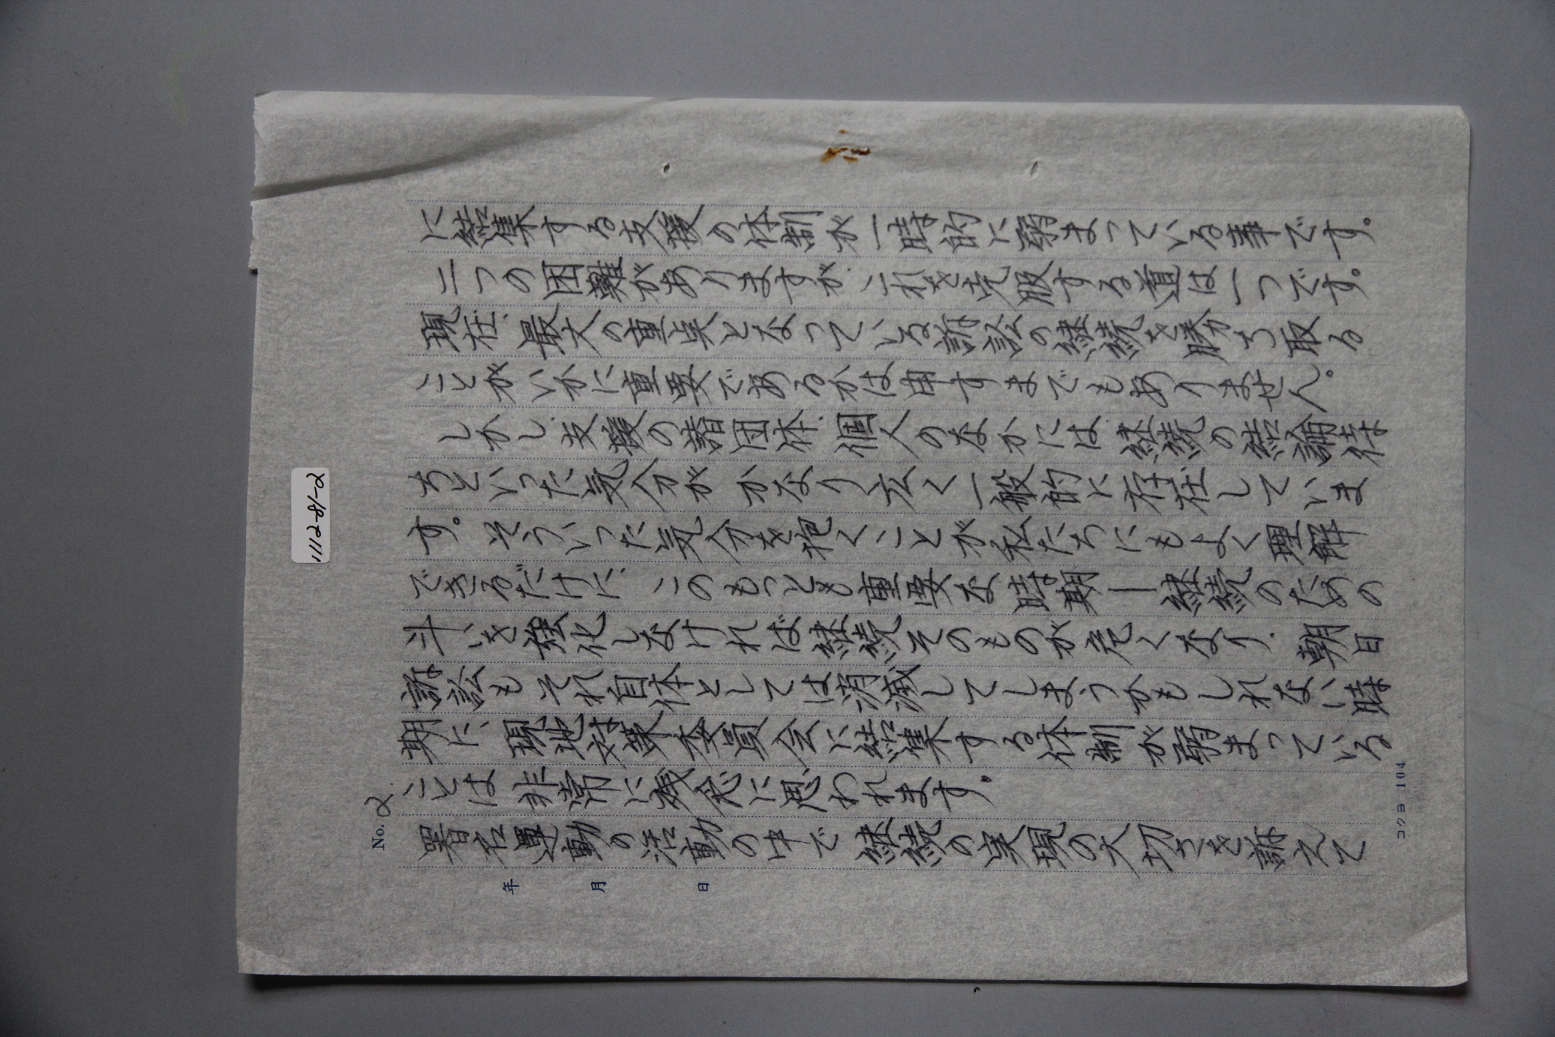 No. 2
に結集する支援の体制が一時的に弱まっている事です。
二つの困難がありますが、これを克服する道は一つです。
現在、最大の重点となっている訴訟の継続を勝ちち取る
ことがいかに重要であるかは申すまでもありません。
しかし、支援の諸団体、個人のなかには継続の結論待
ちといった気分が かなり広く一般的に存在していま
す。そういった気分を抱くことが私たちにもよく理解
できるだけに、このもっとも重要な時期―継続のための
斗いを強化しなければ継続そのものが危くなり、朝日
訴訟もそれ自体としては消滅してしまうかもしれない時
期に、現地対策委員会に結集する体制が弱まっている
ことは非常に残念に思われます。
署名運動の活動の中で 継続の実現の大切さを訴えて
年 月 日
コクヨ 104
1112-81-2